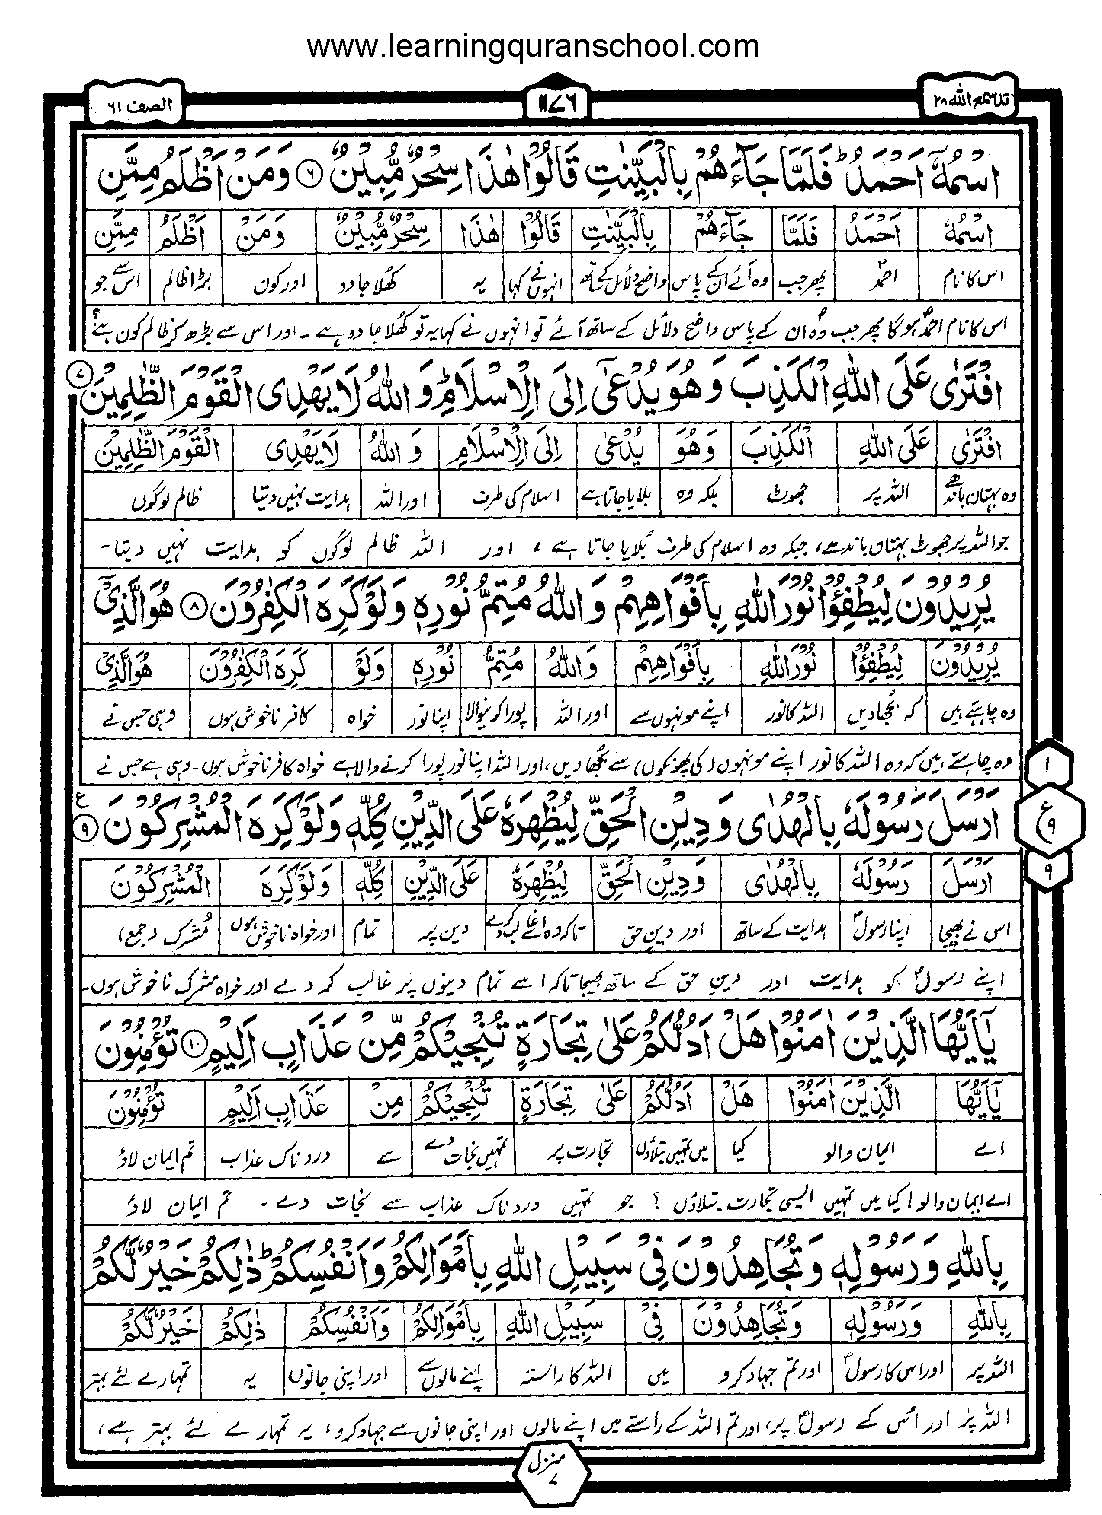 www.learningquranschool.com
الصف ٦١
١١٧٦
قد سمع الله ٢٨
اسْمُهٗۤ اَحْمَدُ ؕ فَلَمَّا جَآءَهُمْ بِالْبَیِّنٰتِ قَالُوْا هٰذَا سِحْرٌ مُّبِیْنٌ ۶ وَمَنْ اَظْلَمُ مِمَّنِ
اسْمُهٗ اَحْمَدُ فَلَمَّا جَآءَهُمْ بِالْبَیِّنٰتِ قَالُوْا هٰذَا سِحْرٌ مُّبِیْنٌ وَمَنْ اَظْلَمُ مِمَّنِ
اس کا نام احمدؐ پھر جب وہ آئے ان کے پاس واضح دلائل کے ساتھ انہوں نے کہا یہ کھلا جادو اور کون بڑا ظالم اس سے جو
اس کا نام احمدؐ ہوگا پھر جب وہؐ ان کے پاس واضح دلائل کے ساتھ آئے تو انہوں نے کہا یہ تو کھلا جادو ہے۔ اور اس سے بڑھ کر ظالم کون ہے؟
افْتَرٰی عَلَی اللّٰهِ الْكَذِبَ وَهُوَ یُدْعٰۤی اِلَی الْاِسْلَامِ ؕ وَاللّٰهُ لَا یَهْدِی الْقَوْمَ الظّٰلِمِیْنَ ۷
افْتَرٰی عَلَی اللّٰهِ الْكَذِبَ وَهُوَ یُدْعٰۤی اِلَی الْاِسْلَامِ وَاللّٰهُ لَا یَهْدِی الْقَوْمَ الظّٰلِمِیْنَ
وہ بہتان باندھے اللہ پر جھوٹ بلکہ وہ بلایا جاتا ہے اسلام کی طرف اور اللہ ہدایت نہیں دیتا ظالم لوگوں
جو اللہ پر جھوٹ بہتان باندھے، جبکہ وہ اسلام کی طرف بُلایا جاتا ہے، اور اللہ ظالم لوگوں کو ہدایت نہیں دیتا۔
یُرِیْدُوْنَ لِیُطْفِـُٔوْا نُوْرَ اللّٰهِ بِاَفْوَاهِهِمْ وَاللّٰهُ مُتِمُّ نُوْرِهٖ وَلَوْ كَرِهَ الْكٰفِرُوْنَ ۸ هُوَ الَّذِیْۤ
یُرِیْدُوْنَ لِیُطْفِـُٔوْا نُوْرَ اللّٰهِ بِاَفْوَاهِهِمْ وَاللّٰهُ مُتِمُّ نُوْرِهٖ وَلَوْ كَرِهَ الْكٰفِرُوْنَ هُوَ الَّذِیْۤ
وہ چاہتے ہیں کہ بُجھا دیں اللہ کا نور اپنے مونہوں سے اور اللہ پورا کرنیوالا اپنا نور خواہ کافر ناخوش ہوں وہی جس نے
وہ چاہتے ہیں کہ وہ اللہ کا نور اپنے مونہوں (کی پھونکوں) سے بُجھا دیں، اور اللہ اپنا نور پورا کرنے والا ہے خواہ کافر ناخوش ہوں۔ وہی ہے جس نے
اَرْسَلَ رَسُوْلَهٗ بِالْهُدٰی وَدِیْنِ الْحَقِّ لِیُظْهِرَهٗ عَلَی الدِّیْنِ كُلِّهٖ وَلَوْ كَرِهَ الْمُشْرِكُوْنَ ۹ ع
۱
ع ۹
۹
اَرْسَلَ رَسُوْلَهٗ بِالْهُدٰی وَدِیْنِ الْحَقِّ لِیُظْهِرَهٗ عَلَی الدِّیْنِ كُلِّهٖ وَلَوْ كَرِهَ الْمُشْرِكُوْنَ
اس نے بھیجا اپنا رسولؐ ہدایت کے ساتھ اور دینِ حق تاکہ وہ اسے غالب کردے دین پر تمام اور خواہ ناخوش ہوں مُشرک (جمع)
اپنے رسولؐ کو ہدایت اور دینِ حق کے ساتھ بھیجا تاکہ اسے تمام دینوں پر غالب کر دے اور خواہ مشرک ناخوش ہوں۔
یٰۤاَیُّهَا الَّذِیْنَ اٰمَنُوْا هَلْ اَدُلُّكُمْ عَلٰی تِجَارَةٍ تُنْجِیْكُمْ مِّنْ عَذَابٍ اَلِیْمٍ ۱۰ تُؤْمِنُوْنَ
یٰۤاَیُّهَا الَّذِیْنَ اٰمَنُوْا هَلْ اَدُلُّكُمْ عَلٰی تِجَارَةٍ تُنْجِیْكُمْ مِنْ عَذَابٍ اَلِیْمٍ تُؤْمِنُوْنَ
اے ایمان والو کیا میں تمہیں بتلاؤں تجارت پر تمہیں نجات دے سے دردناک عذاب تم ایمان لاؤ
اے ایمان والو! کیا میں تمہیں ایسی تجارت بتلاؤں؟ جو تمہیں دردناک عذاب سے نجات دے۔ تم ایمان لاؤ
بِاللّٰهِ وَرَسُوْلِهٖ وَتُجَاهِدُوْنَ فِیْ سَبِیْلِ اللّٰهِ بِاَمْوَالِكُمْ وَاَنْفُسِكُمْ ؕ ذٰلِكُمْ خَیْرٌ لَّكُمْ
بِاللّٰهِ وَرَسُوْلِهٖ وَتُجَاهِدُوْنَ فِیْ سَبِیْلِ اللّٰهِ بِاَمْوَالِكُمْ وَاَنْفُسِكُمْ ذٰلِكُمْ خَیْرٌ لَّكُمْ
اللہ پر اور اس کا رسولؐ اور تم جہاد کرو میں اللہ کا راستہ اپنے مالوں سے اور اپنی جانوں یہ تمہارے لئے بہتر
اللہ پر اور اُس کے رسولؐ پر، اور تم اللہ کے راستے میں اپنے مالوں اور اپنی جانوں سے جہاد کرو، یہ تمہارے لئے بہتر ہے،
منزل ۷